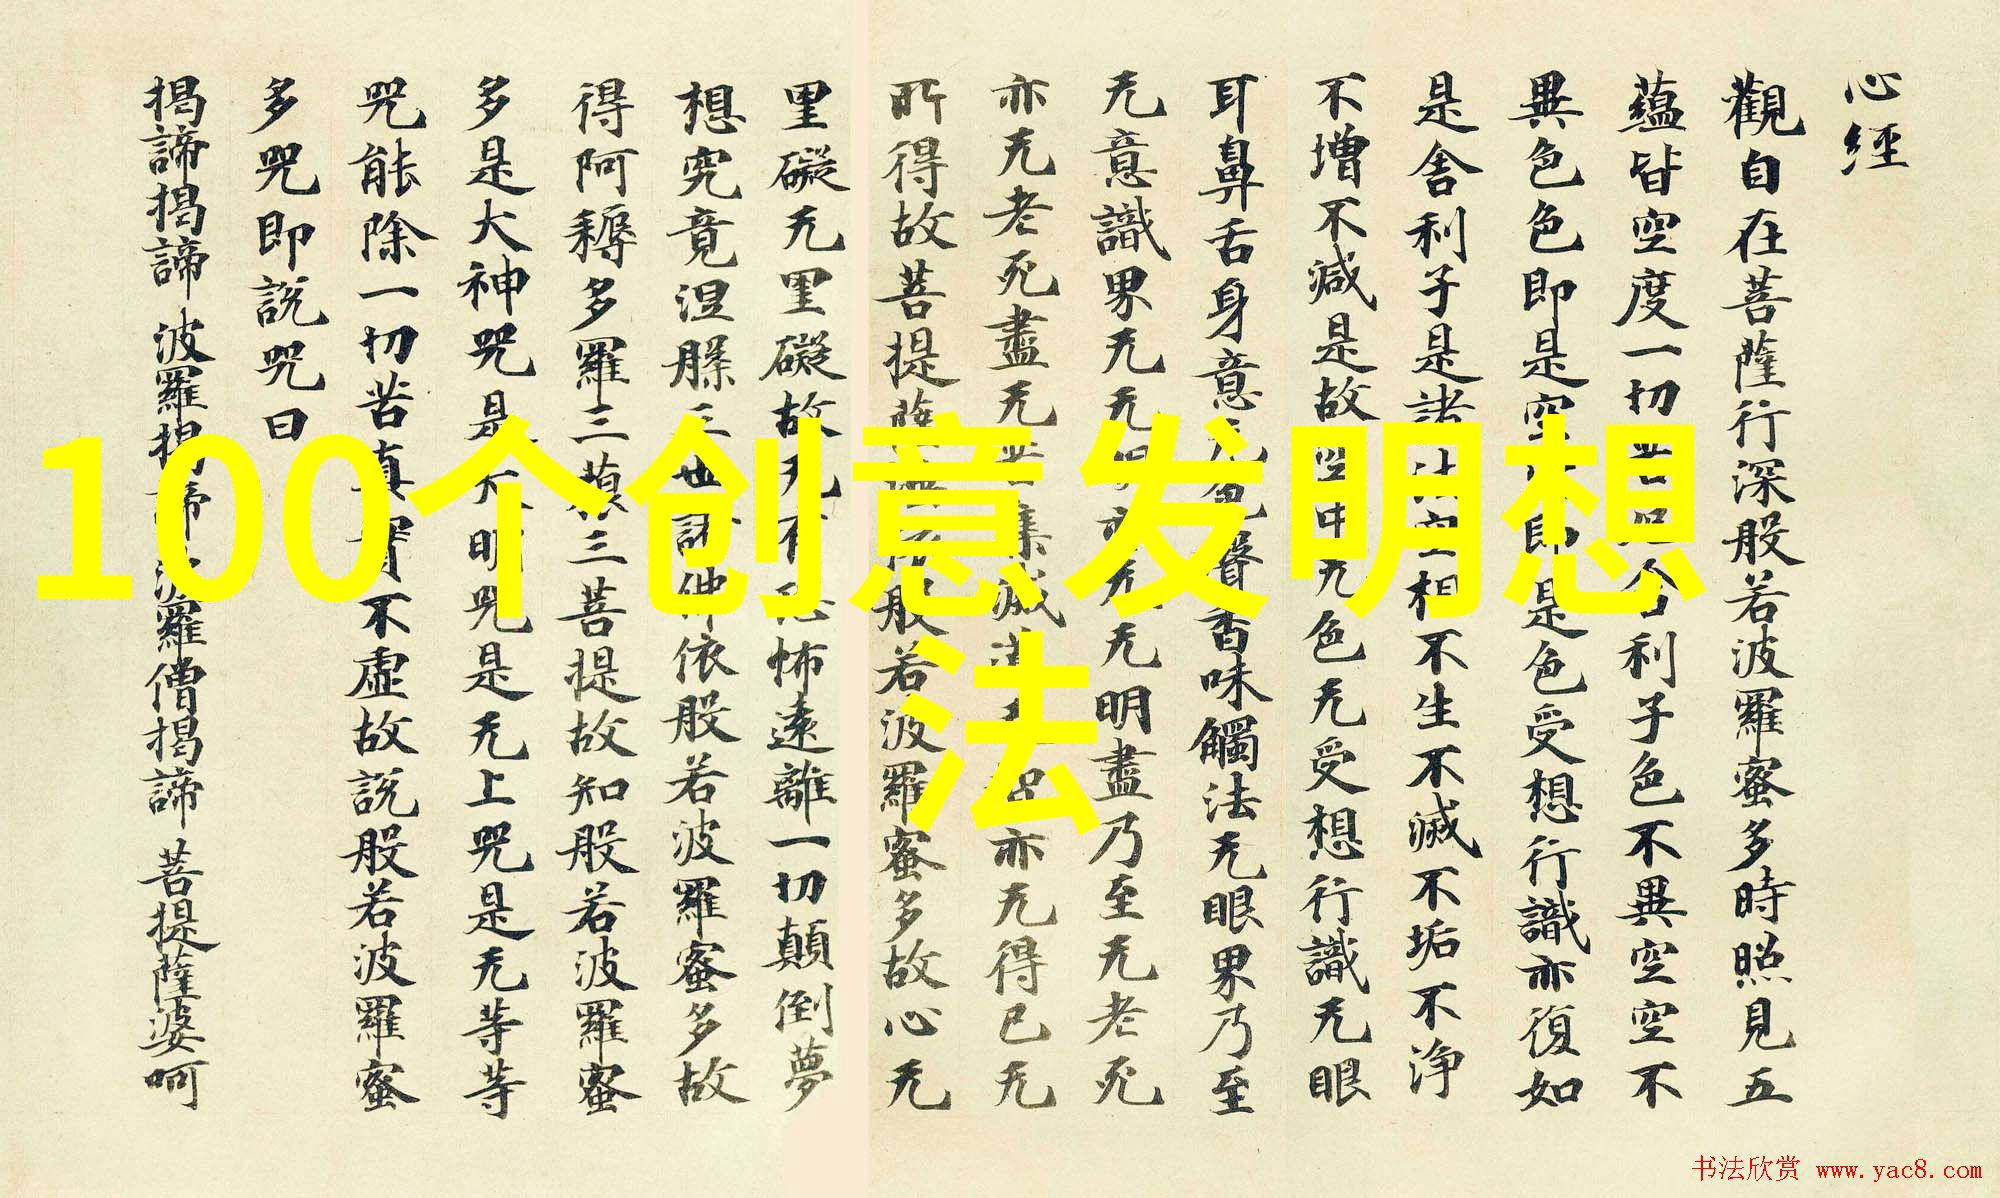 心經
觀自在菩薩行深般若波羅蜜多時照見五
蘊皆空度一切利子色不異空空不
異色色即是空即是色受想行識亦復如
是舍利子是諸法空相不生不滅不垢不淨
不增不減是故空中无色无受想行識无眼
耳鼻舌身意无色聲香味觸法无眼界乃至
无意識界无无明亦无无明盡乃至无老死
亦无老死盡无苦集滅道亦无得已无
所得故菩提薩般若波羅蜜多故心无
罣礙无罣礙故无有恐怖遠離一切顛倒夢
想究竟涅槃三世諸佛依般若波羅蜜多故
得阿耨多羅三藐三菩提故知般若波羅蜜
多是大神咒是大明咒是无上咒是无等等
咒能除一切苦真實不虛故說般若波羅蜜
多咒即說咒曰
揭諦揭諦 波羅揭諦 波羅僧揭諦 菩提薩婆呵
100个创意发明想
法
书法欣赏 www.yac8.com